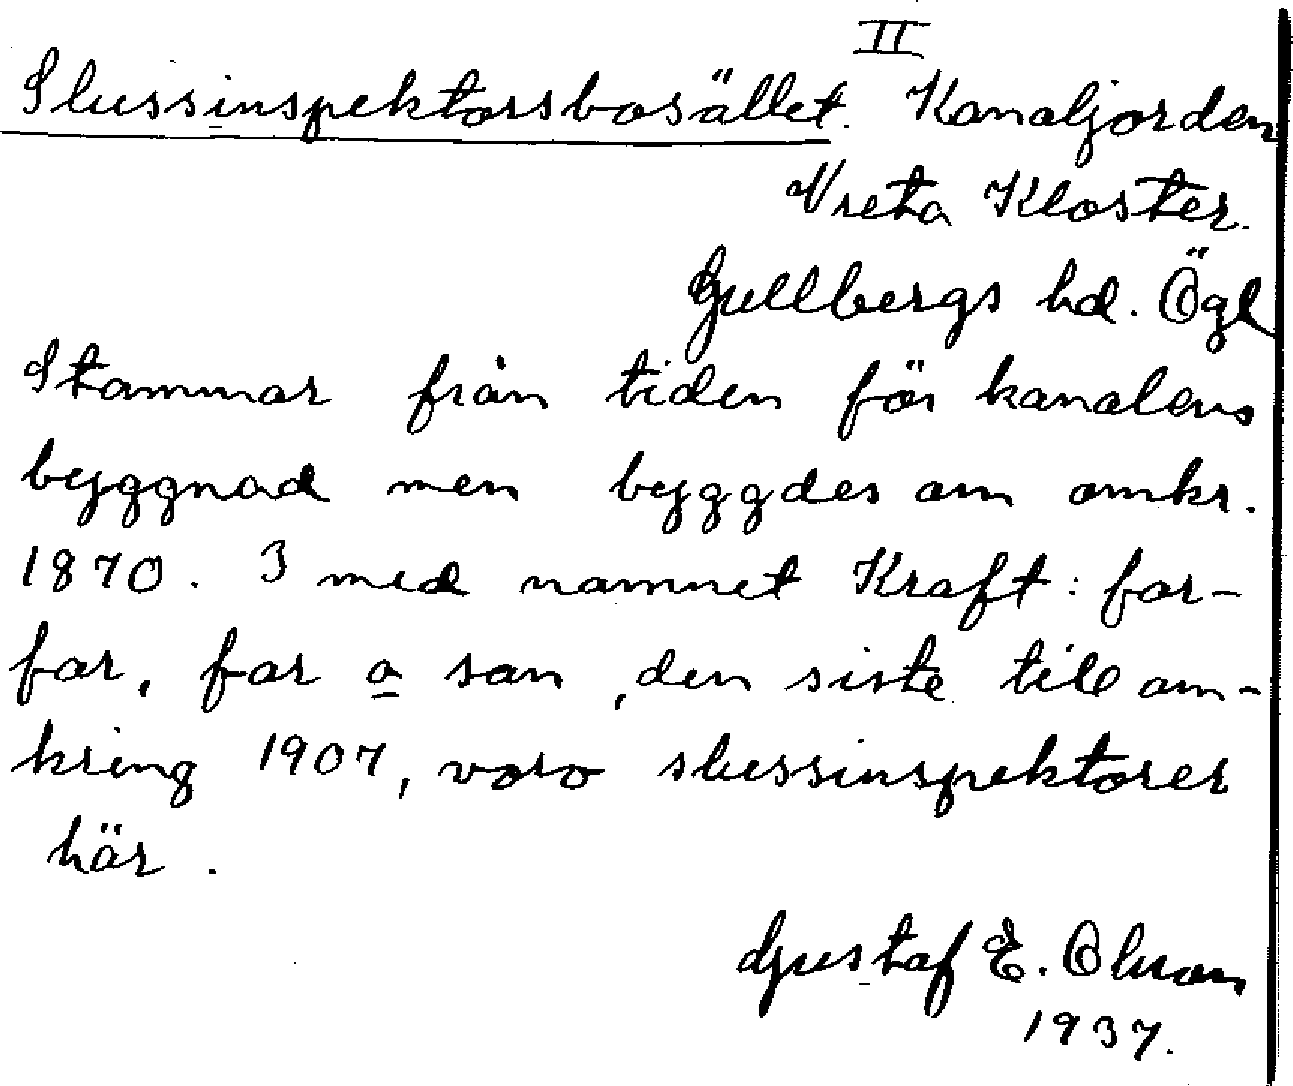 II
Slussinspektorsbosället. Kanaljorden
Vreta Kloster.
Gullbergs hd. Ögl
Stammar från tiden för kanalens
byggnad men byggdes om omkr.
1870. 3 med namnet Kraft: far-
far, far o son, den siste till om-
kring 1907, voro slussinspektorer
här.
Gustaf E. Olsson
1937.